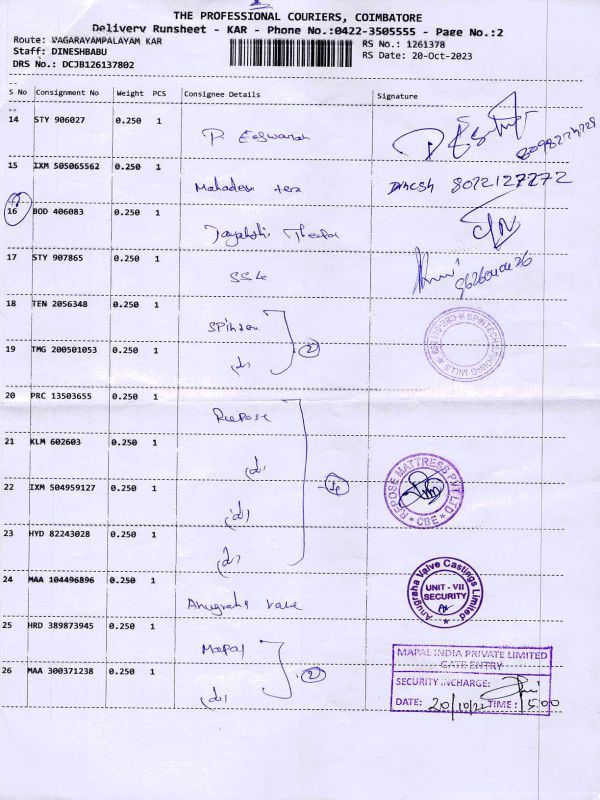 THE PROFESSIONAL COURIERS, COIMBATORE
Delivery Runsheet - KAR - Phone No.:0422-3505555 - Page No.:2
Route: VAGARAYAMPALAYAM KAR
RS No.: 1261378
Staff: DINESHBABU
RS Date: 20-Oct-2023
DRS No.: DCJB126137802
S No Consignment No Weight PCS Consignee Details Signature
14 STY 906027 0.250 1
R Easwaran
15 IXM 505065562 0.250 1
Mahadevi
Dinesh 8022127272
16 BOD 406083 0.250 1
17 STY 907865 0.250 1
SSK
18 TEN 2056348 0.250 1
19 TMG 200501053 0.250 1
2
20 PRC 13503655 0.250 1
Repose
21 KLM 602603 0.250 1
22 IXM 504959127 0.250 1
4
REPOSE MATTRESS PVT LTD
CBE
23 HYD 82243028 0.250 1
24 MAA 104496896 0.250 1
Anugraha Valve
Anugraha Valve Castings Limited
UNIT - VII
SECURITY
25 HRD 389873945 0.250 1
Mapal
MAPAL INDIA PRIVATE LIMITED
GATE ENTRY
26 MAA 300371238 0.250 1
2
SECURITY INCHARGE:
DATE: 20/10/23 TIME: 15.00